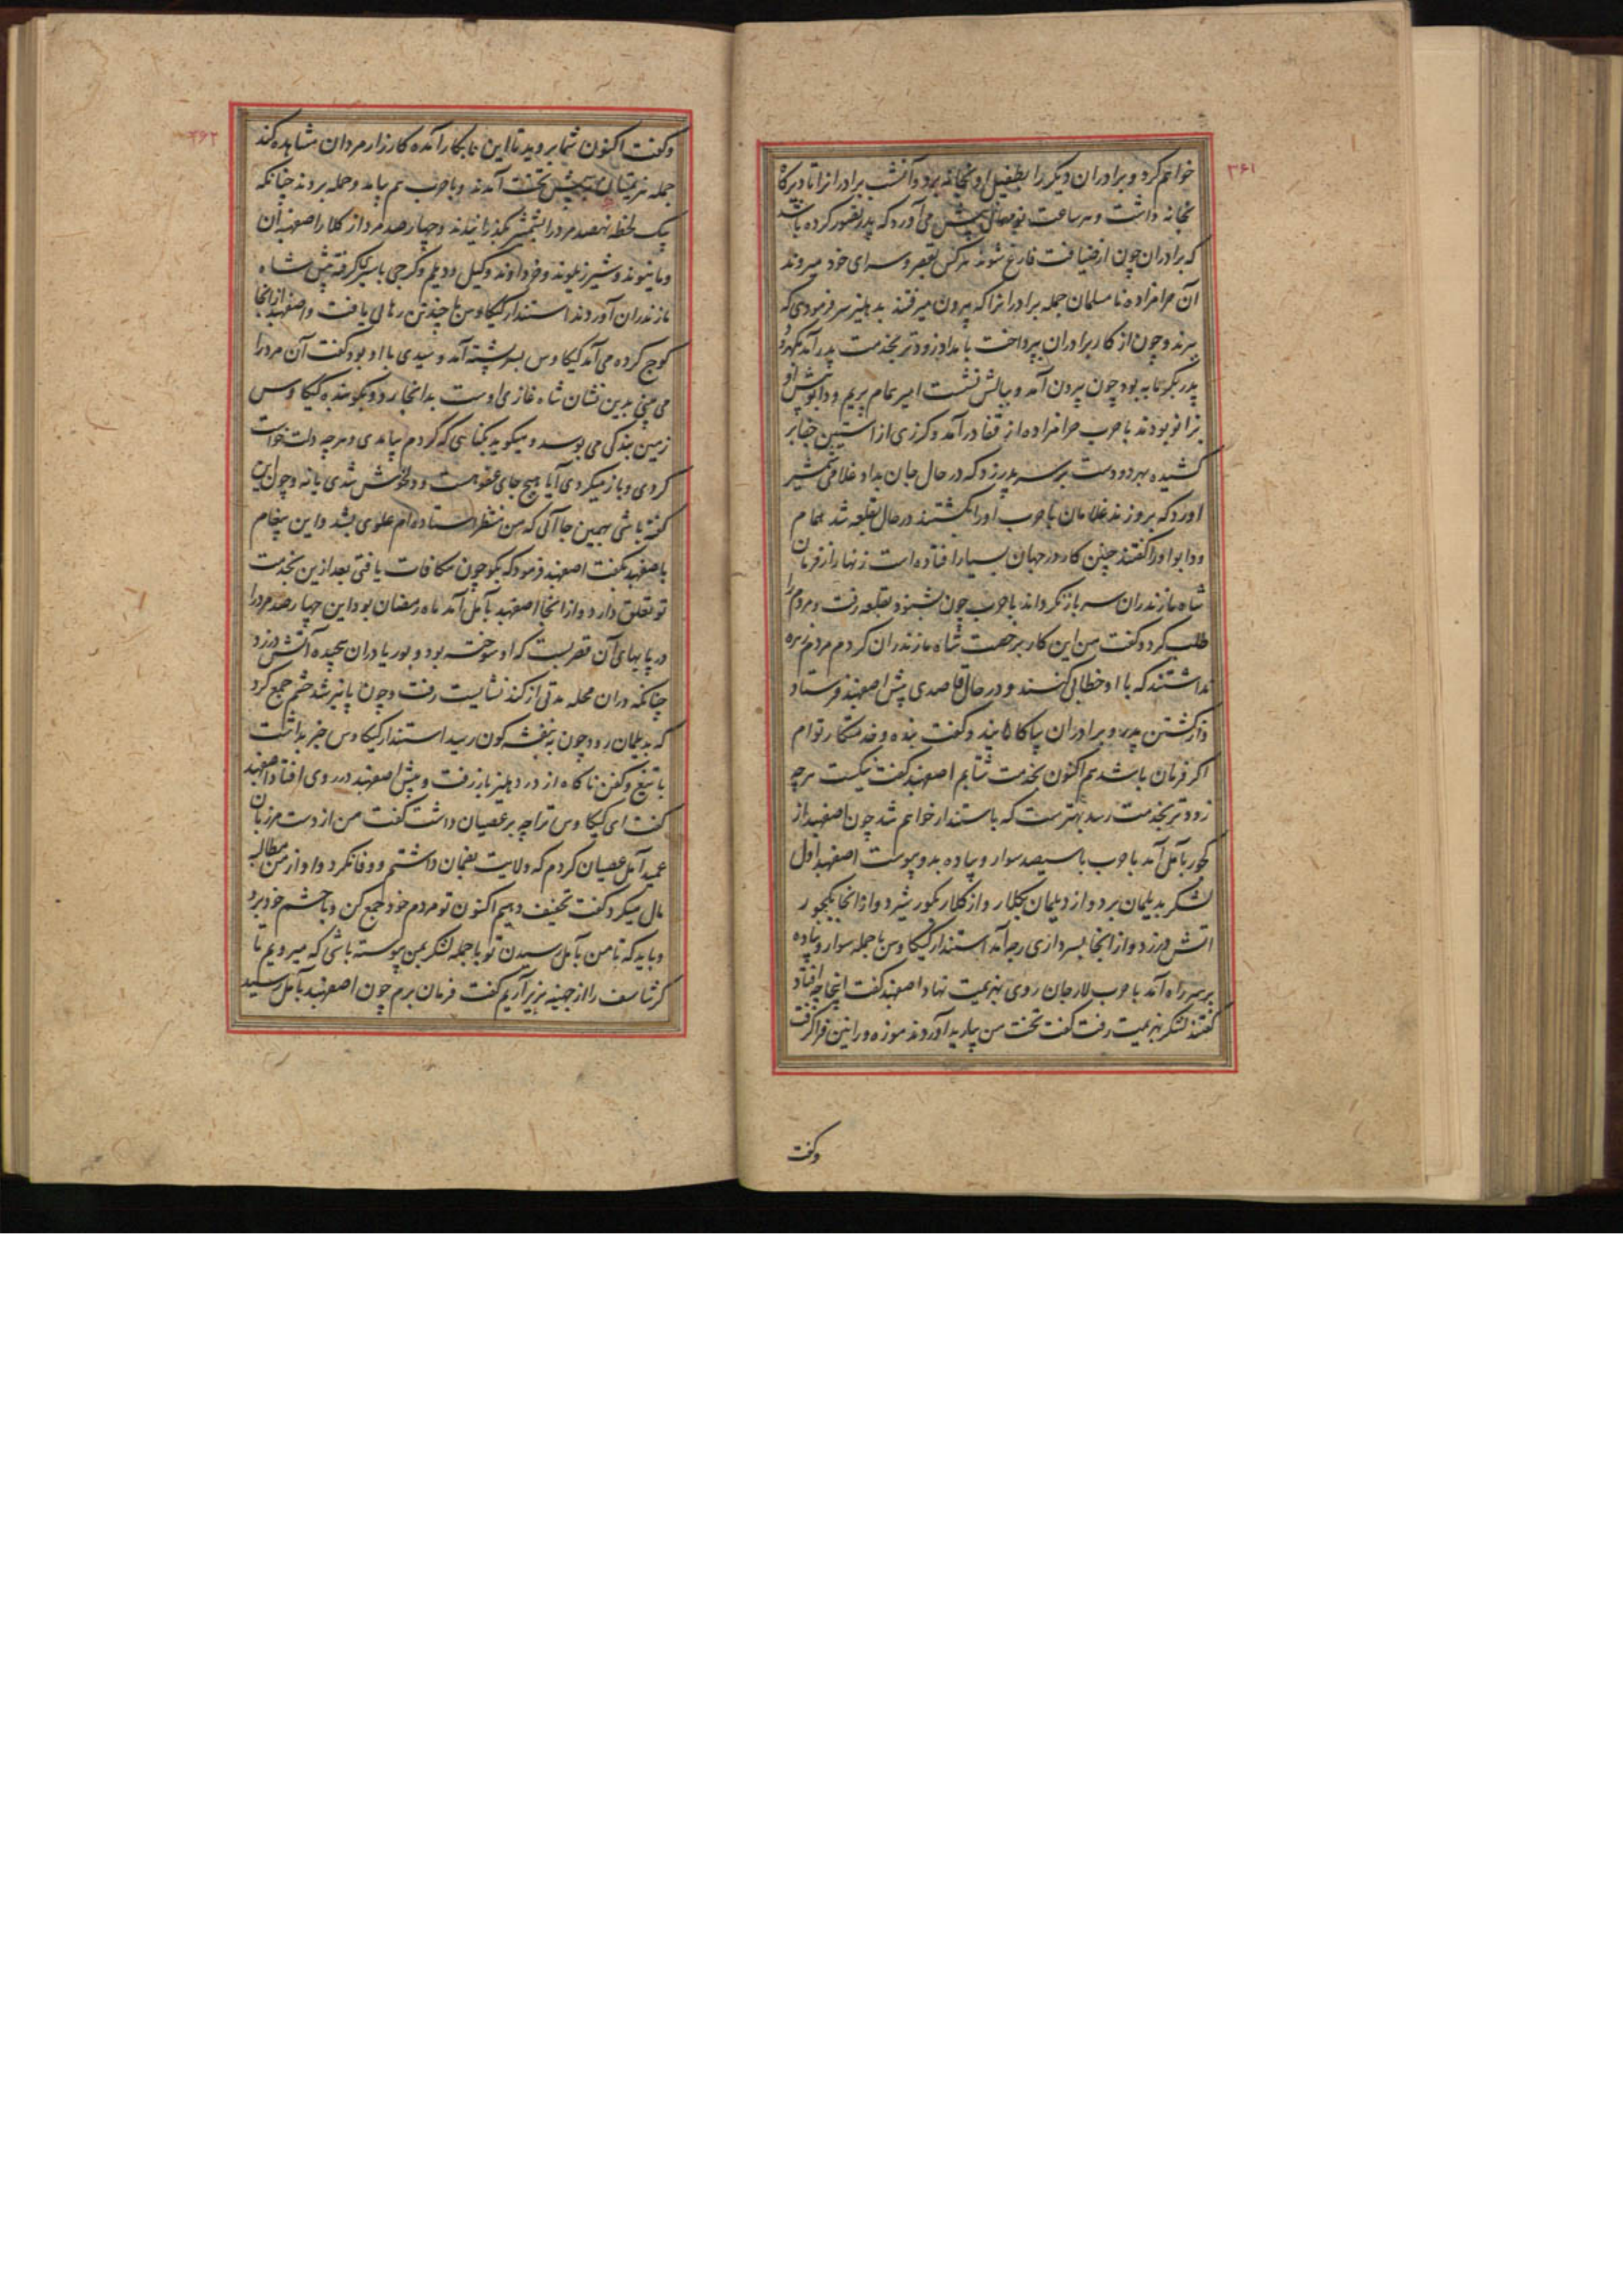 ۳۶۱
خواهم کرد و برادران دیگر را بطفیل او بخانه برد و آنشب برادرانرا تا دیرگاه
بخانه داشت و هر ساعت می آورد که پدر تصور کرده باشد
که برادران چون از ضیافت فارغ شوند هرکس بقصر و سرای خود میروند
آن حرامزاده نامسلمان جمله برادرانرا که بیرون میرفتند بدهلیز سر فرمودی که
ببرند و چون از کار برادران بپرداخت بامداد زودتر بخدمت پدر آمد
پدر بگرمابه بود چون بیرون آمد و ببالش نشست امیر همام بریم و دابو پیش او
بزانو بودند باحرب حرامزاده از قفا درآمد و گرزی از آستین
کشیده بهر دو دست بر سر پدر زد که در حال جان بداد غلامی شمشیر
آورد که بروز ند غلامان باحرب اورا بکشتند در حال بقلعه شد همام
و دابو اورا گفتند چنین کار در جهان بسیار افتاده است زنهار از فرمان
شاه مازندران سر باز نگرداند باحرب چون بشنود بقلعه رفت و مردم را
طلب کرد و گفت من این کار برخصت شاه مازندران کردم مردم زهره
نداشتند که با او خطابی کنند و در حال قاصدی پیش اصفهبد فرستاد
و از کشتن پدر و برادران بیاگاهانید و گفت بنده و خدمتکار توام
اگر فرمان باشدم اکنون بخدمت شتابم اصفهبد گفت نیکست هرچه
زودتر بخدمت رسد بهترست که با استندار خواهم شد چون اصفهبد از
کجور بآمل آمد باحرب با سیصد سوار و پیاده بدو پیوست اصفهبد اول
لشکر بدیلمان برد و از دیلمان بکلار و از کلار بکورشیرد و از آنجا بکجور
آتش درزد و از آنجا بسردازی رجه آمد استندار کیکاوس با جمله سوار و پیاده
بر سر راه آمد باحرب لارجان روی بهزیمت نهاد اصفهبد گفت اینجا چه افتاد
گفتند لشکر بهزیمت رفت گفت تخت من بیارید آوردند موزه و رانین فراگرفت
وگفت
۳۶۲
و گفت اکنون شما بروید تا این نابکار آمده کارزار مردان مشاهده کند
جمله هزیمتیان پیش تخت آمدند و باحرب هم بیامد و حمله بردند چنانکه
بیک لحظه نهصد مرد را بشمشیر بگذرانیدند و چهارصد مرد از کلار اصفهبدان
و ماینوند و شیرزیلوند و خرداوند و گیل و دیلم و گرجی باسیر گرفته پیش شاه
مازندران آوردند استندار کیکاوس با چند تن رهائی یافت و اصفهبد از آنجا
کوچ کرده می آمد کیکاوس بسر پشته آمد و سیدی با او بود گفت آن مرد را
می بینی بدین نشان شاه غازی اوست بدانجا رو و بگو بنده کیکاوس
زمین بندگی می بوسد و میگوید بگناهی که کردم بیامدی و هرچه دلت خواست
کردی و باز میگردی آیا هیچ جای عفو هست و دلخوش شدی یا نه و چون این
گفته باشی بهمین جا آئی که من منتظر ایستاده ام علوی بشد و این پیغام
باصفهبد بگفت اصفهبد فرمود که بگو چون مکافات یافتی بعد ازین بخدمت
تو تعلق دارد و از آنجا اصفهبد بآمل آمد ماه رمضان بود این چهارصد مرد را
در پایهای آن قصر بست که او سوخته بود و بوریا دران پیچیده آتش درزد
چنانکه دران محله مدتی از گند نشایست رفت و چون پائیز شد حشم جمع کرد
که بدیلمان رود چون به بنفشه گون رسید استندار کیکاوس خبر بداشت
با تیغ و کفن ناگاه از در دهلیز باز رفت و پیش اصفهبد در روی افتاد اصفهبد
گفت ای کیکاوس ترا چه بر عصیان داشت گفت من از دست مرزبان
عمید آمل عصیان کردم که ولایت بضمان داشتم و وفا نکرد و او از من مطالبه
مال میکرد گفت تخفیف دهیم اکنون تو مردم خود جمع کن و با حشم خود برو
و باید که تا من بآمل رسیدن تو با جمله لشکر بمن پیوسته باشی که میرویم تا
گرشاسف را از جهینه بزیر آریم گفت فرمان برم چون اصفهبد بآمل رسید